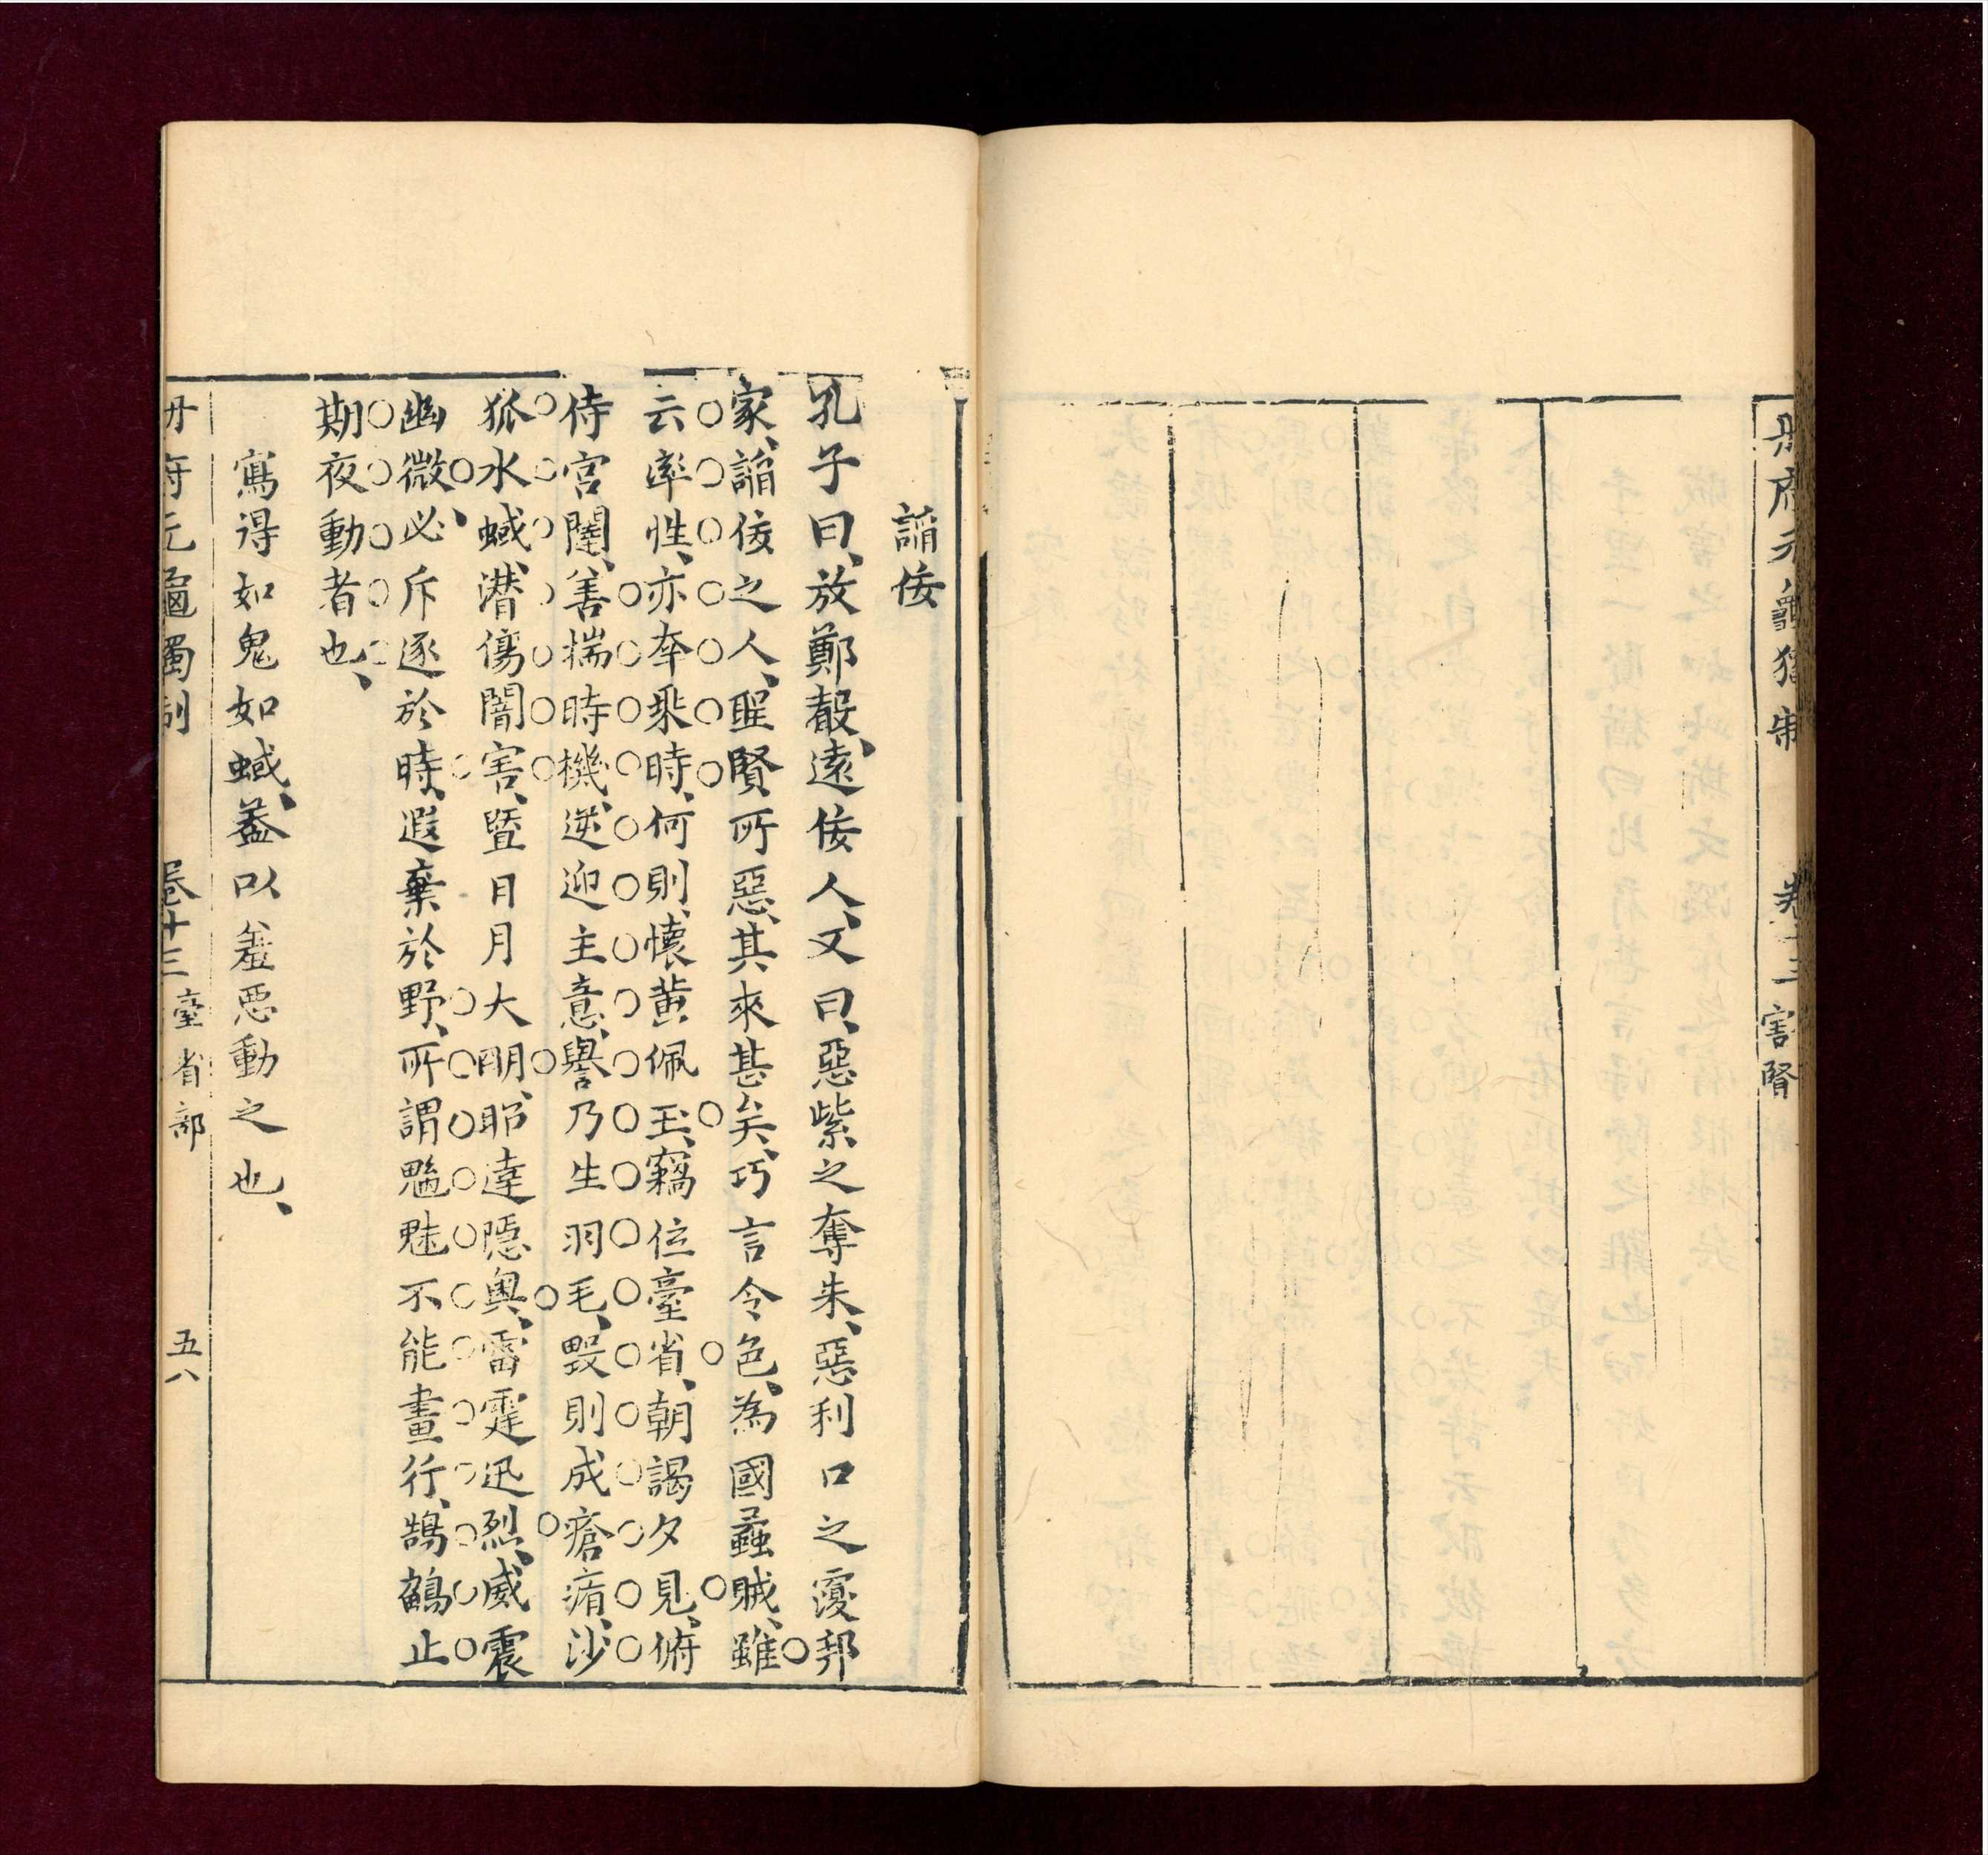 冊府元龜獨制 卷十三 害賢
諂佞
孔子曰、放鄭聲、遠佞人、又曰、惡紫之奪朱、惡利口之覆邦
家、諂佞之人、聖賢所惡、其來甚矣、巧言令色、為國蟊賊、雖
云率性、亦夲乘時、何則、懷黃佩玉、竊位臺省、朝謁夕見、俯
侍宮闈、善揣時機、逆迎主意、譽乃生羽毛、毀則成瘡痏、沙
狐水蜮、潛傷闇害、暨日月大明、昭達隱奧、雷霆迅烈、威震
幽微、必斥逐於時、遐棄於野、所謂魑魅不能晝行、鵂鶹止
期夜動者也、
寫得如鬼如蜮、葢以羞惡動之也、
冊府元龜獨制 卷十三 臺省部 五八